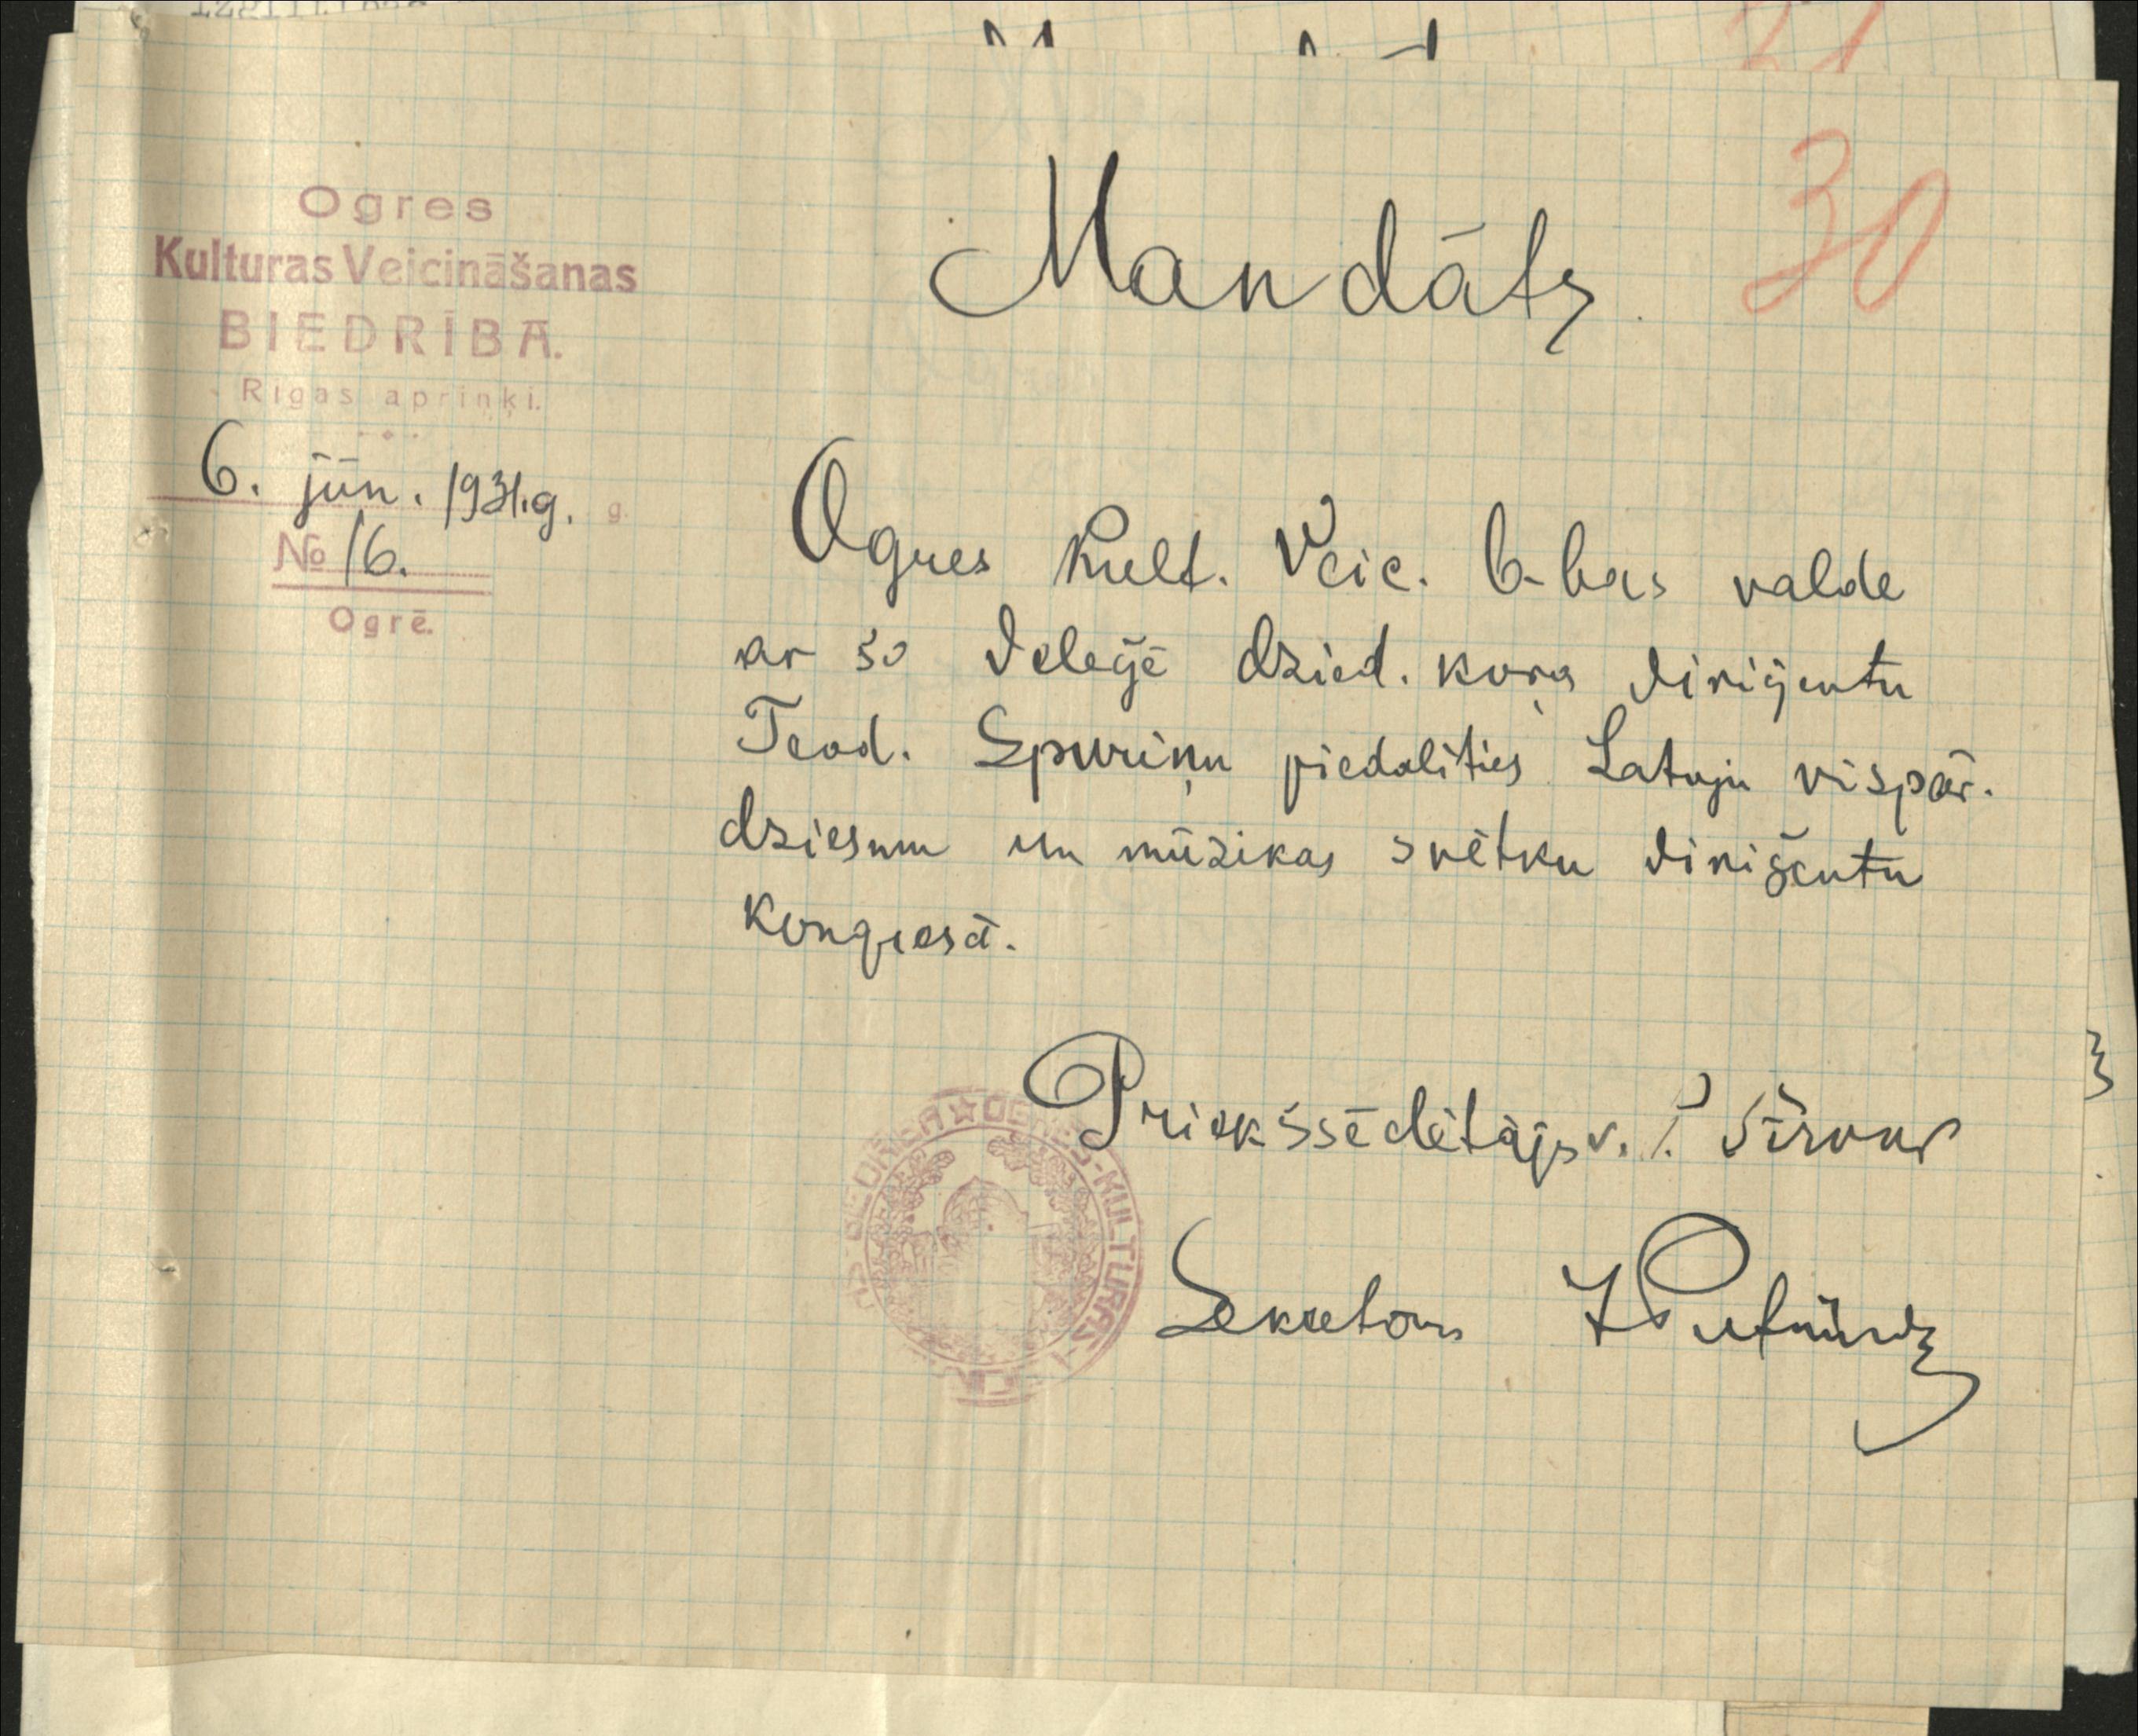 30
Ogres
Kulturas Veicināšanas
BIEDRĪBA.
Rīgas apriņķi.
6. jūn. 1931.g. g.
No 16.
Ogrē.
Mandāts.
Ogres Kult. Veic. b-bas valde
ar šo deleģē dzied. kora diriģentu
Teod. Spuriņu piedalīties Latvju vispār.
dziesmu un mūzikas svētku diriģentu
kongresā.
Priekšsēdētājs v. i.
Sekretārs
BIEDRĪBA ★ OGRES-KULTURAS-